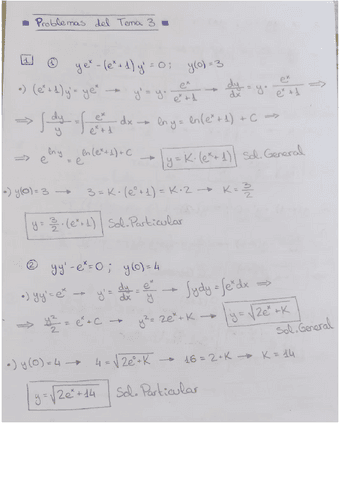 Problemas del Tema 3
1 ① ye^x - (e^x+1)y' = 0; y(0)=3
•) (e^x+1)y' = ye^x → y' = y · e^x/(e^x+1) → dy/dx = y · e^x/(e^x+1) ⇒
⇒ ∫ dy/y = ∫ e^x/(e^x+1) dx → ln y = ln(e^x+1) + C ⇒
⇒ e^(ln y) = e^(ln(e^x+1)+C) → y = K·(e^x+1) Sol. General
•) y(0)=3 → 3 = K·(e^0+1) = K·2 → K = 3/2
y = 3/2·(e^x+1) Sol. Particular
② yy' - e^x = 0; y(0)=4
•) yy' = e^x → y' = dy/dx = e^x/y → ∫ydy = ∫e^x dx ⇒
⇒ y²/2 = e^x + C → y² = 2e^x + K → y = √(2e^x + K)
Sol. General
•) y(0)=4 → 4 = √(2e^0+K) → 16 = 2+K → K = 14
y = √(2e^x + 14) Sol. Particular